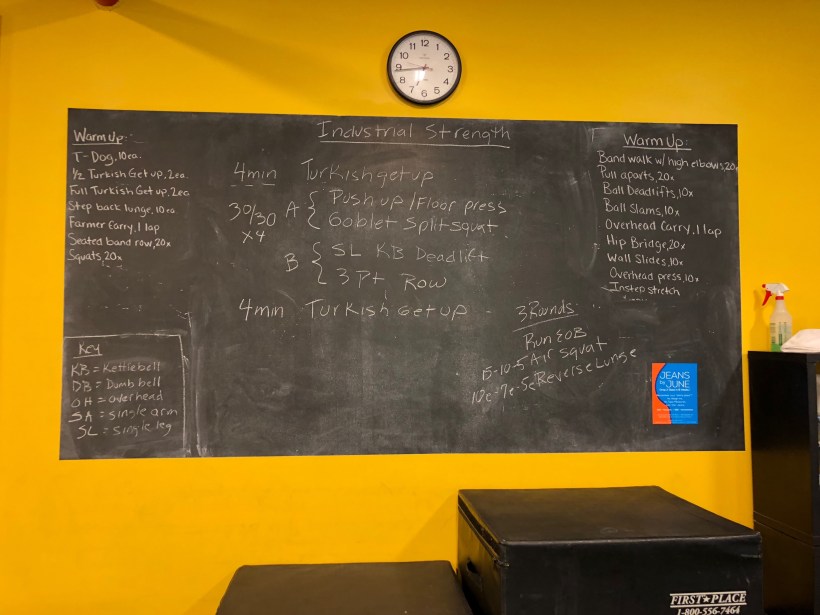 Industrial Strength
Warm Up:
T-Dog, 10ea.
1/2 Turkish Get up, 2ea.
Full Turkish Get up, 2ea
Step back lunge, 10 ea.
Farmer Carry, 1 lap
Seated band row, 20x
Squats, 20x
Key
KB = Kettlebell
DB = Dumbbell
OH = overhead
SA = single arm
SL = single leg
4min Turkish get up
30/30 A { Push up / Floor press
x4 Goblet Split squat
B { SL KB Deadlift
3 Pt Row
4min Turkish Get up
3 Rounds:
Run
15-10-5 Air squat
Reverse Lunge
Warm Up:
Band walk w/ high elbows, 20x
Pull aparts, 20x
Ball Deadlifts, 10x
Ball Slams, 10x
Overhead Carry, 1 lap
Hip Bridge, 20x
Wall Slides, 10x
Overhead press, 10x
Instep stretch
JEANS
to
JUNE
12
1
2
3
4
5
6
7
8
9
10
11
FIRST★PLACE
1-800-556-7464